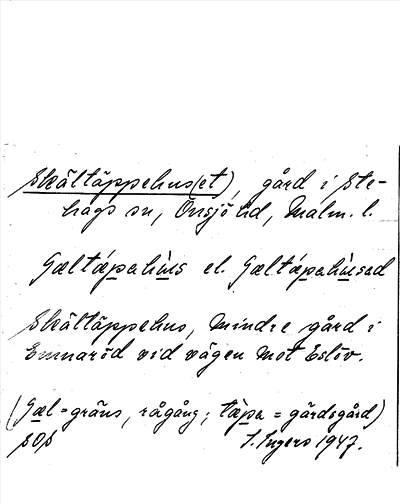 Skältäppehus(et), gård i Ste-
hags sn, Onsjö hd, Malm. l.
Gæltǽpahùs el. Gæltǽpahùsad
Skältäppehus, mindre gård i
Emnaröd vid vägen mot Eslöv.
(Gæl = gräns, rågång; tæpa = gärdsgård)
SOS I. Ingers 1947.